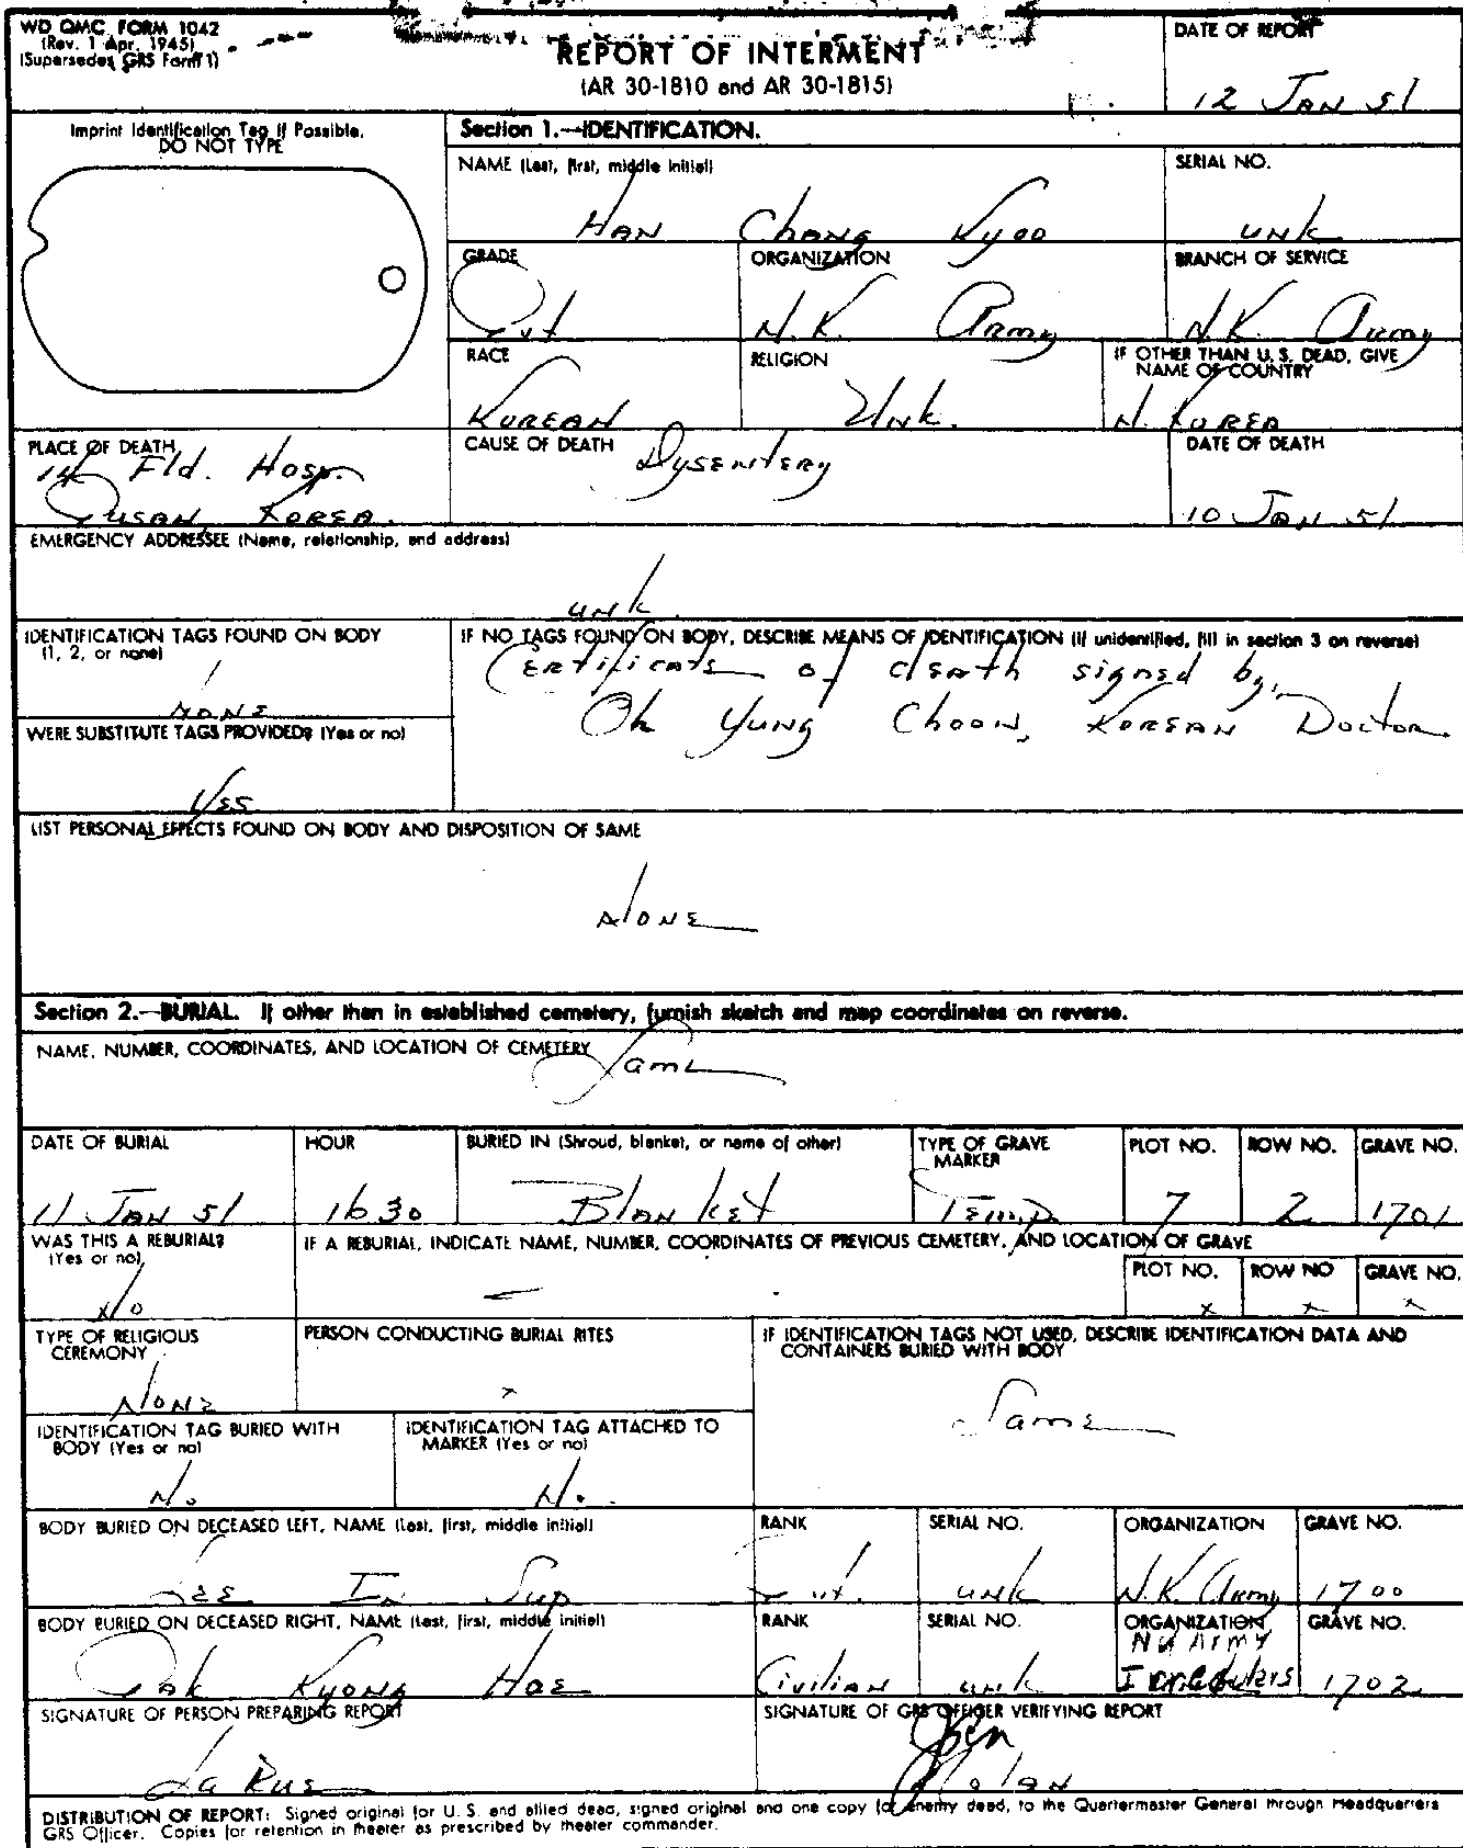 WD QMC FORM 1042
(Rev. 1 Apr. 1945)
(Supersedes GRS Form 1)
REPORT OF INTERMENT
(AR 30-1810 and AR 30-1815)
DATE OF REPORT
12 JAN 51
Imprint Identification Tag If Possible.
DO NOT TYPE
Section 1.—IDENTIFICATION.
NAME (Last, first, middle initial)
HAN Chang Kyoo
SERIAL NO.
unk
GRADE
Pvt
ORGANIZATION
N.K. Army
BRANCH OF SERVICE
N.K. Army
RACE
KOREAN
RELIGION
Unk.
IF OTHER THAN U. S. DEAD, GIVE
NAME OF COUNTRY
N. KOREA
PLACE OF DEATH
14 Fld. Hosp.
Pusan, Korea.
CAUSE OF DEATH
Dysentery
DATE OF DEATH
10 JAN 51
EMERGENCY ADDRESSEE (Name, relationship, and address)
unk.
IDENTIFICATION TAGS FOUND ON BODY
(1, 2, or none)
NONE
IF NO TAGS FOUND ON BODY, DESCRIBE MEANS OF IDENTIFICATION (If unidentified, fill in section 3 on reverse)
Certificate of death signed by,
Oh Yung Choon, Korean Doctor.
WERE SUBSTITUTE TAGS PROVIDED? (Yes or no)
Yes
LIST PERSONAL EFFECTS FOUND ON BODY AND DISPOSITION OF SAME
NONE
Section 2.—BURIAL. If other than in established cemetery, furnish sketch and map coordinates on reverse.
NAME, NUMBER, COORDINATES, AND LOCATION OF CEMETERY
Same
DATE OF BURIAL
11 JAN 51
HOUR
1630
BURIED IN (Shroud, blanket, or name of other)
Blanket
TYPE OF GRAVE
MARKER
Temp
PLOT NO.
7
ROW NO.
2
GRAVE NO.
1701
WAS THIS A REBURIAL?
(Yes or no)
No
IF A REBURIAL, INDICATE NAME, NUMBER, COORDINATES OF PREVIOUS CEMETERY, AND LOCATION OF GRAVE
—
PLOT NO.
x
ROW NO
x
GRAVE NO.
x
TYPE OF RELIGIOUS
CEREMONY
None
PERSON CONDUCTING BURIAL RITES
x
IF IDENTIFICATION TAGS NOT USED, DESCRIBE IDENTIFICATION DATA AND
CONTAINERS BURIED WITH BODY
Same
IDENTIFICATION TAG BURIED WITH
BODY (Yes or no)
No
IDENTIFICATION TAG ATTACHED TO
MARKER (Yes or no)
No.
BODY BURIED ON DECEASED LEFT, NAME (Last, first, middle initial)
Lee In Sup
RANK
Pvt.
SERIAL NO.
unk
ORGANIZATION
N.K. Army
GRAVE NO.
1700
BODY BURIED ON DECEASED RIGHT, NAME (Last, first, middle initial)
Pak Kyong Hoe
RANK
Civilian
SERIAL NO.
unk
ORGANIZATION
NK Army
Irregulars
GRAVE NO.
1702
SIGNATURE OF PERSON PREPARING REPORT
La Rue
SIGNATURE OF GRS OFFICER VERIFYING REPORT
DISTRIBUTION OF REPORT: Signed original for U. S. and allied dead, signed original and one copy for enemy dead, to the Quartermaster General through Headquarters
GRS Officer. Copies for retention in theater as prescribed by theater commander.